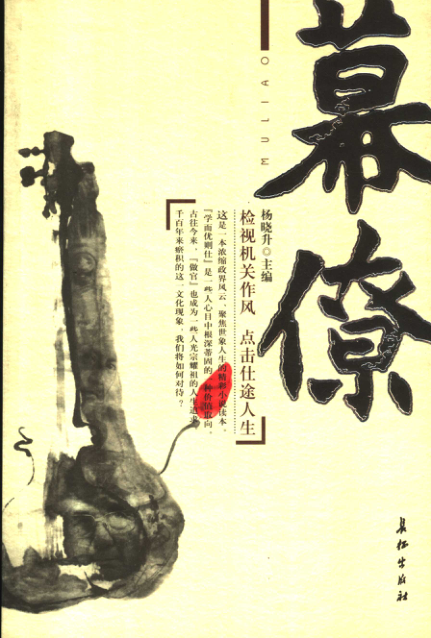 幕僚
MULIAO
杨晓升◎主编
检视机关作风 点击仕途人生
这是一本浓缩政界风云、聚焦世象人生的精粹小说读本。
『学而优则仕』是一些人心目中根深蒂固的一种价值取向。
古往今来，『做官』也成为一些人光宗耀祖的人生追求。
千百年来瘀积的这一文化现象，我们将如何对待？
长征出版社